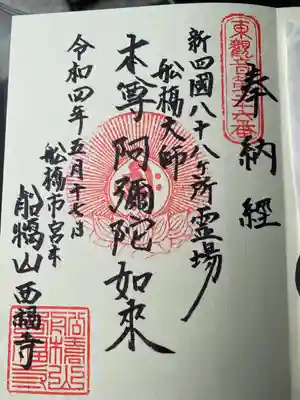 東觀音第六番
奉納経
新四國八十八ヶ所霊場
船橋大師
本尊 阿彌陀如來
令和四年五月十七日
船橋市宮本
船橋山西福寺